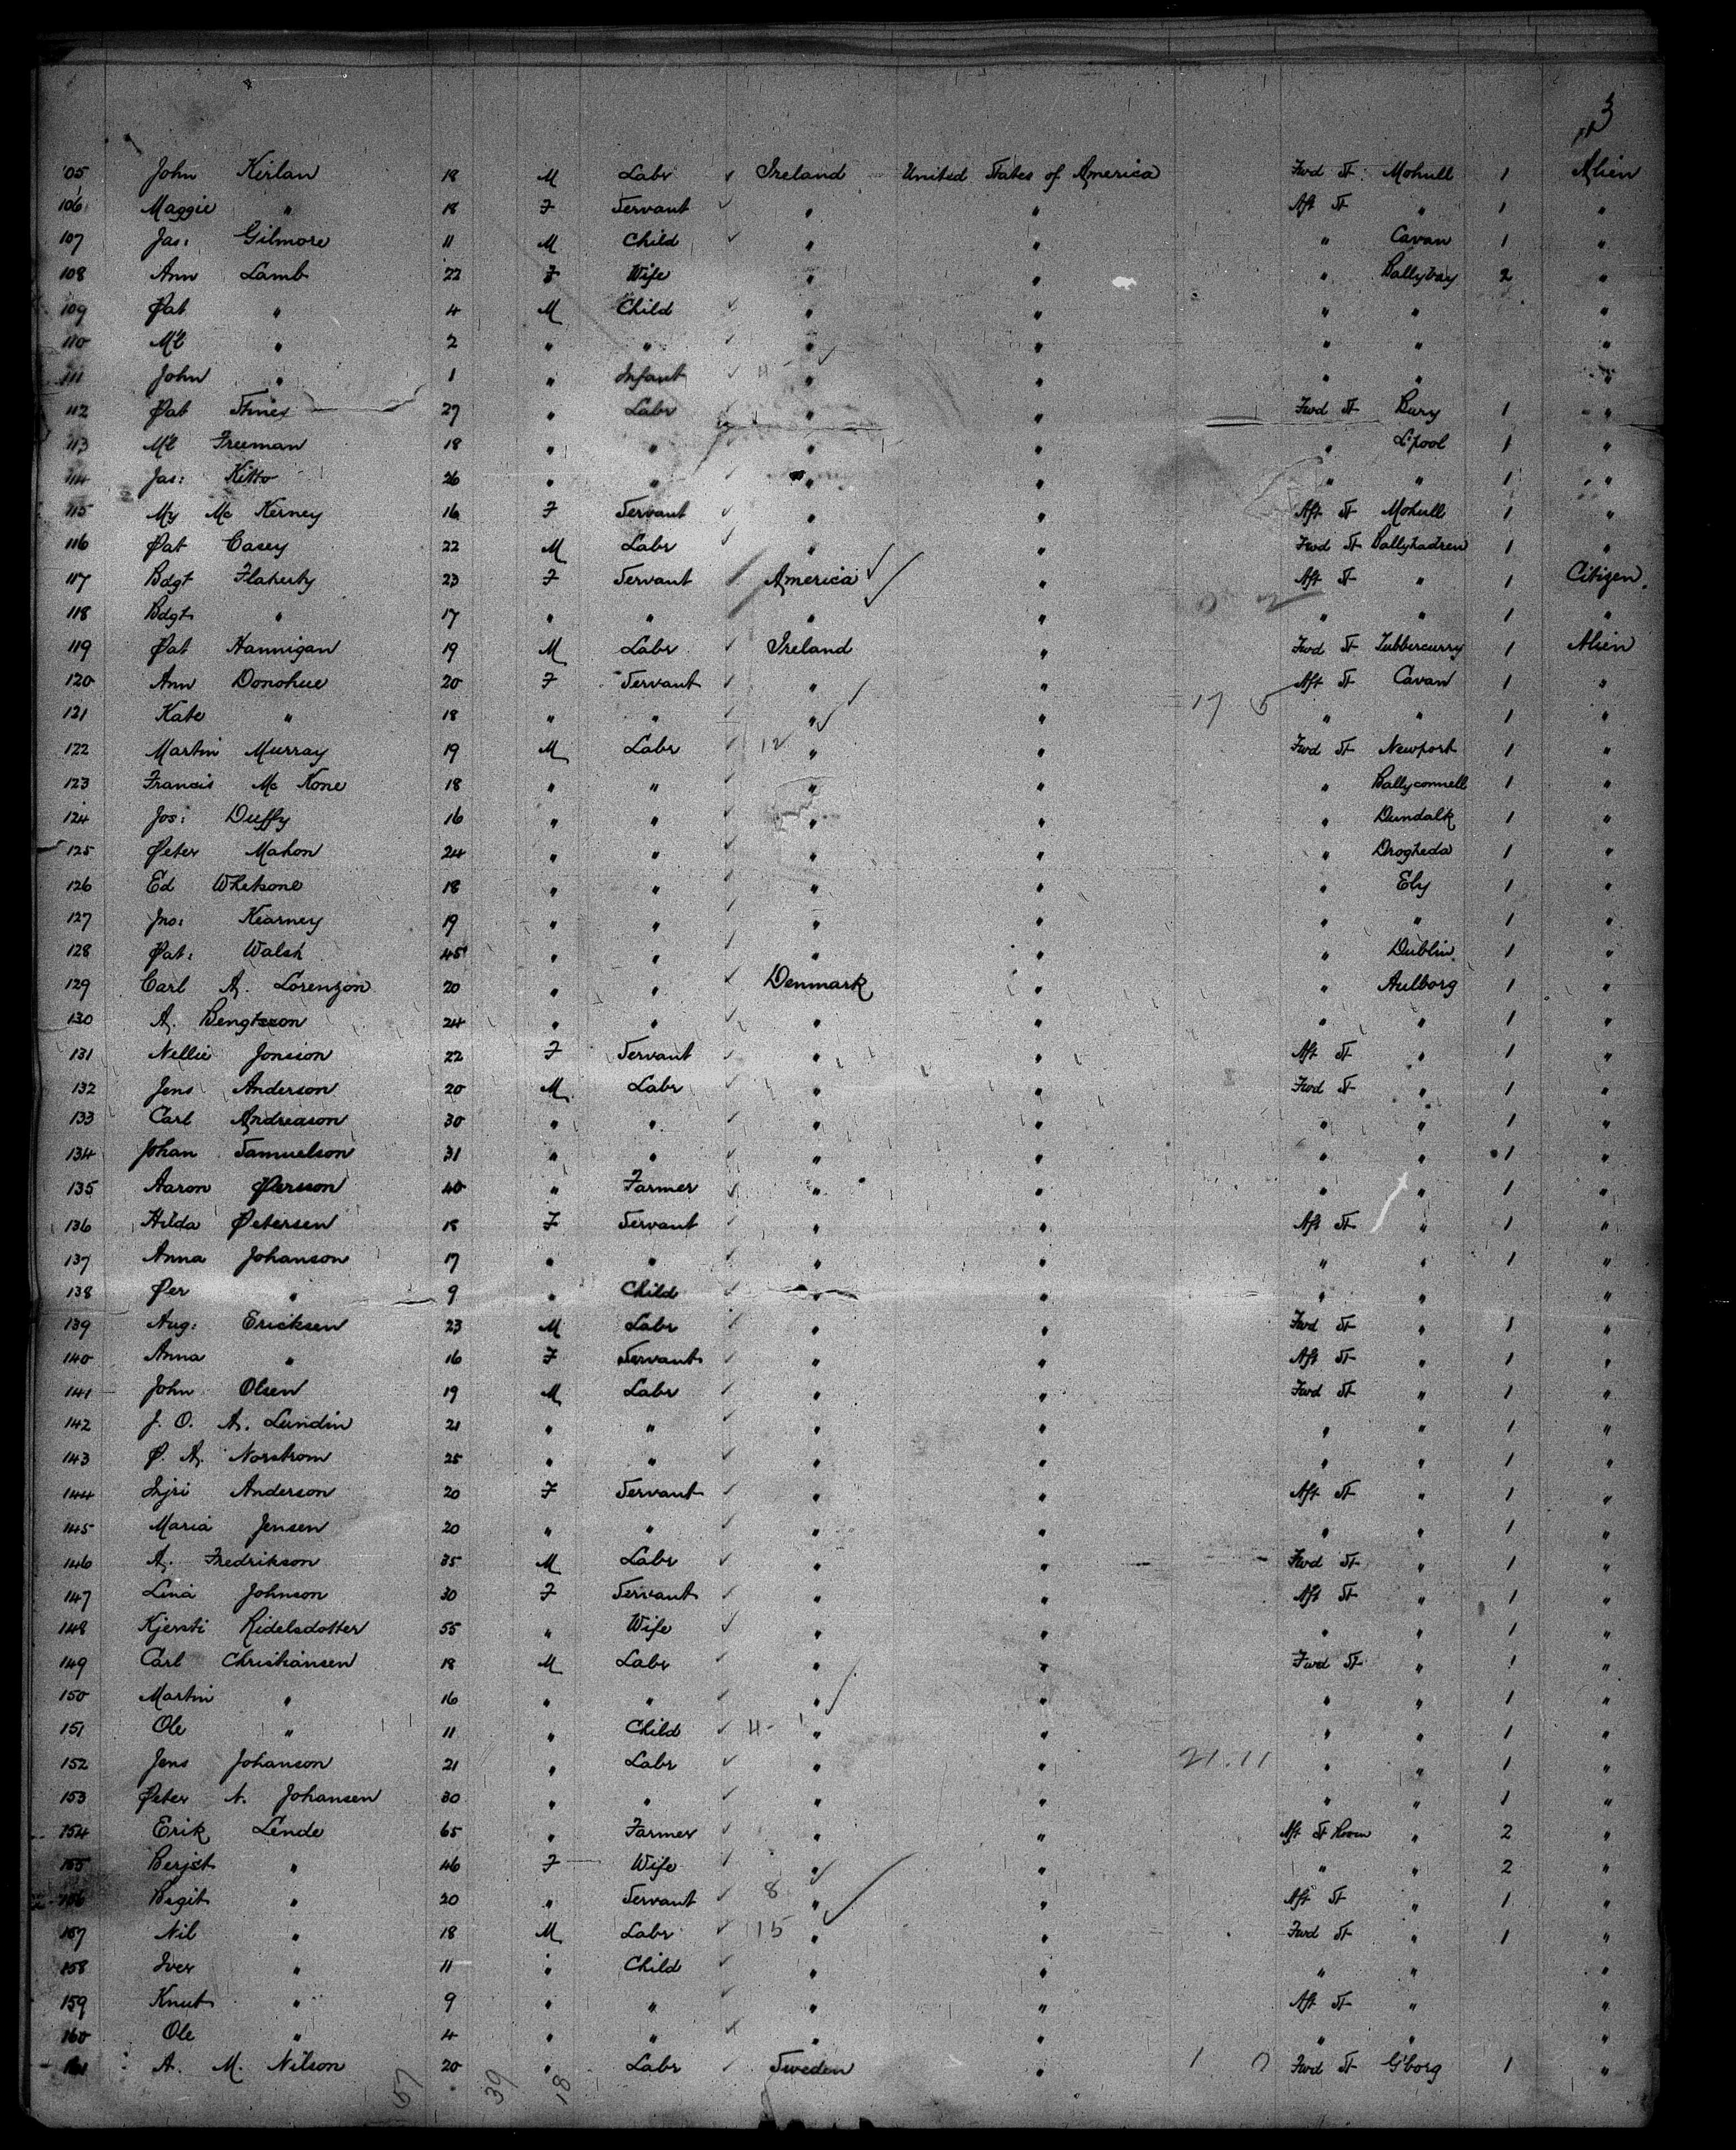 3
105 John Kirlan 18 M Labr Ireland United States of America Fwd St Mohull 1 Alien
106 Maggie " 18 F Servant " " Aft St " 1 "
107 Jas: Gilmore 11 M Child " " " Cavan 1 "
108 Ann Lamb 22 F Wife " " " Ballybay 2 "
109 Pat " 4 M Child " " " " "
110 Ml " 2 " " " " " " "
111 John " 1 " Infant " " " " "
112 Pat 27 " Labr " " Fwd St Bury 1 "
113 Ml Freeman 18 " " " " " L'pool 1 "
114 Jas: Kitto 26 " " " " " " 1 "
115 My Mc Kerney 16 F Servant " " Aft St Mohull 1 "
116 Pat Casey 22 M Labr " " Fwd St Ballyhadren 1 "
117 Bdgt Flaherty 23 F Servant America " Aft St " 1 Citizen
118 Bdgt " 17 " " " " " " 1 "
119 Pat Hannigan 19 M Labr Ireland " Fwd St Tubbercurry 1 Alien
120 Ann Donohue 20 F Servant " " Aft St Cavan 1 "
121 Kate " 18 " " " " 17 5 " " 1 "
122 Martin Murray 19 M Labr 12 " " Fwd St Newport 1 "
123 Francis Mc Kone 18 " " " " " Ballyconnell 1 "
124 Jos: Duffy 16 " " " " " Dundalk 1 "
125 Peter Mahon 24 " " " " " Drogheda 1 "
126 Ed Whetsone 18 " " " " " Ely 1 "
127 Jno: Kearney 19 " " " " " " 1 "
128 Pat: Walsh 45 " " " " " Dublin 1 "
129 Carl A. Lorenzon 20 " " Denmark " " Aulborg 1 "
130 A. Bengtsson 24 " " " " " " 1 "
131 Nellie Jonsson 22 F Servant " " Aft St " 1 "
132 Jens Anderson 20 M Labr " " Fwd St " 1 "
133 Carl Andreason 30 " " " " " " 1 "
134 Johan Samuelson 31 " " " " " " 1 "
135 Aaron Persson 40 " Farmer " " " " 1 "
136 Hilda Petersen 18 F Servant " " Aft St " 1 "
137 Anna Johanson 17 " " " " " " 1 "
138 Per " 9 " Child " " " " "
139 Aug: Ericksen 23 M Labr " " Fwd St " 1 "
140 Anna " 16 F Servant " " Aft St " 1 "
141 John Olsen 19 M Labr " " Fwd St " 1 "
142 J. O. A. Lundin 21 " " " " " " 1 "
143 P. A. Norstrom 25 " " " " " " 1 "
144 Injri Anderson 20 F Servant " " Aft St " 1 "
145 Maria Jensen 20 " " " " " " 1 "
146 A. Fredrikson 35 M Labr " " Fwd St " 1 "
147 Lina Johnson 30 F Servant " " Aft St " 1 "
148 Kjersti Ridelsdotter 55 " Wife " " " " 1 "
149 Carl Christiansen 18 M Labr " " Fwd St " 1 "
150 Martin " 16 " " " " " " 1 "
151 Ole " 11 " Child " " " " 1 "
152 Jens Johanson 21 " Labr " " 21.11 " " 1 "
153 Peter A. Johansen 30 " " " " " " 1 "
154 Erik Lende 65 " Farmer " " Aft St Room " 2 "
155 Berjet " 46 F Wife " " " " 2 "
156 Begit " 20 " Servant 8 " " Aft St " 1 "
157 Nil " 18 M Labr 15 " " Fwd St " 1 "
158 Iver " 11 " Child " " " " "
159 Knut " 9 " " " " Aft St " "
160 Ole " 4 " " " " " " "
161 A. M. Nilson 20 " Labr Sweden " 1 Fwd St G'borg 1 "
57 39 18